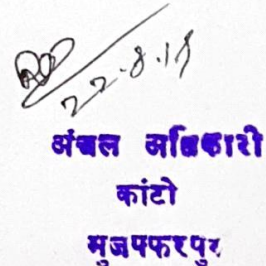 22.8.18
अंचल अधिकारी
कांटी
मुजफ्फरपुर